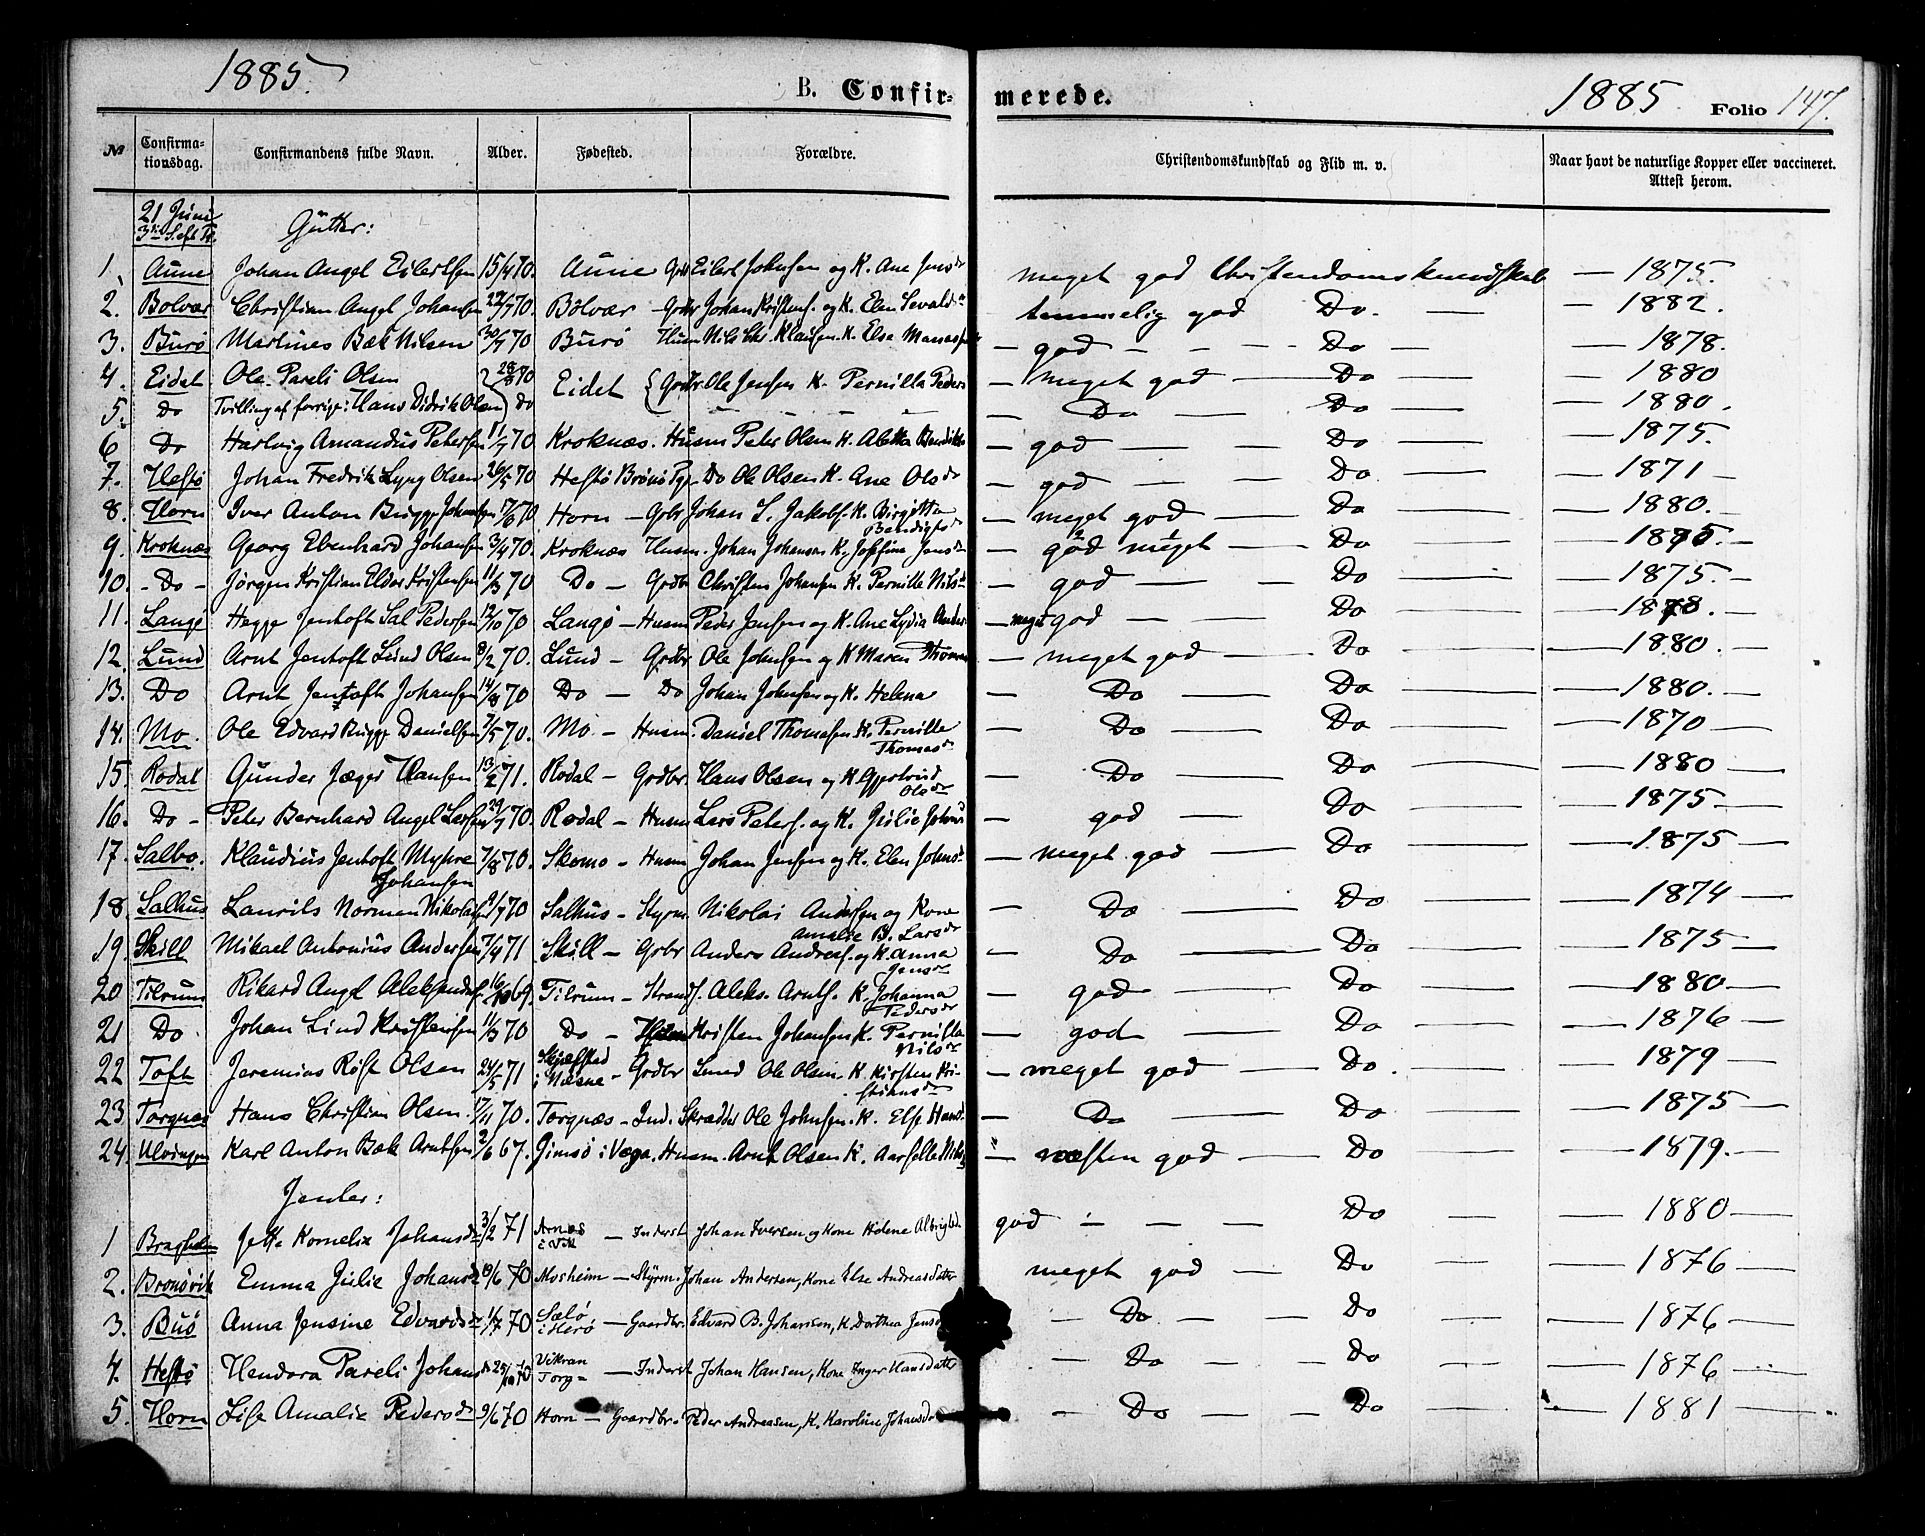 1885.
B. Confir-
merede.
1885
Folio 147.
№ Confirma-tionsdag. Confirmandens fulde Navn. Alder. Fødested. Forældre. Christendomskundskab og Flid m. v. Naar havt de naturlige Kopper eller vaccineret. Attest herom.
21 Juni
3die S. eft. Tr. Gutter:
1. Aune Johan Angel Eilertsen 15/4 70. Aune Grbr Eilert Johnsen og K. Ane Jensdr meget god Christendomskundskab — 1875.
2. Bolvær Christian Angel Johansen 22/7 70. Bolvær — Grbr Johan Kristens. og K. Elen Sevaldsdr temmelig god Do. — 1882.
3. Burø Martines Bæk Nilsen 30/7 70 Burø Husm Nils Chr. Klausen. K. Else — god — Do — 1878.
4. Eidet Ole Pareli Olsen 28/8 70 Eidet Grdbr. Ole Jensen K. Pernilla Peders — meget god — Do — 1880
5. Do Tvilling af forrige: Hans Didrik Olsen Do — — — Do — Do — 1880.
6 Do Hartvig Amandus Petersen 11/7 70. Kroknæs. Husm Peter Olsen K. — god — Do — 1875.
7. Hestø Johan Fredrik Lyng Olsen 26/5 70 Hestø Brønø Pgj. Do Ole Olsen K. Ane Olsdr — god — Do — 1871 —
8. Horn Iver Anton Bugge Johansen 17/8 70 Horn — Grbr Johan S. Jakobs. K. Birgitta — meget god — Do — 1880. —
9. Kroknæs Georg Ebenhard Johansen 3/4 70. Kroknæs Husm. Johan Johansen K. Josefine Jensdr — god meget — Do — 1875. —
10. - Do - Jørgen Kristian Elder Kristensen 11/3 70 Do — Grdbr Christen Johansen K. Pernille Nilsdr — god — Do — 1875. —
11. Langø Hegge Jentoft Sal Pedersen 12/10 70 Langø — Husm Peder Jensen og K. Ane Lydia Anders — meget god — Do — 1878. —
12. Lund Arnt Jentoft Lund Olsen 8/2 70. Lund — Grdbr Ole Johnsen og K Maren Thomas — meget god — Do — 1880. —
13. Do Arnt Jentoft Johansen 14/8 70 Do — Do Johan Johnsen og K. Helena — Do — Do — 1880. —
14. Mo. Ole Edvard Bugge Danielsen 7/5 70. Mo — Husm. Daniel Thomasen K. Pernille Thomasdr — Do — Do — 1870 —
15. Rodal Gunder Jæger Hansen 13/2 71. Rodal — Grdbr Hans Olsen og K. Gjertrud Olsdr — Do — Do — 1880 —
16. Do - Peter Bernhard Angel Larsen 29/7 70. Rodal — Husm Lars Peters. og K. Julie — god — Do — 1875 —
17. Salbo. Klaudius Jentoft Myhre Johansen 7/8 70. Skomo — Husm Johan Jensen og K. Elen Johnsdr — meget god — Do — 1875
18. Salhus Laurits Normen Nikolais. 9/7 70 Salhus — Styrm Nikolai Andersen og Kone Amalie B. Larsdr — Do — Do — 1874 —
19. Skill Mikael Antonius Andersen 7/4 71 Skill — Grbr Anders Andreas. og K. Anna Jensdr — Do — Do — 1875 —
20 Tilrum Rikard Angel Aleksanders. 16/10 69. Tilrum — Strands. Aleks. Arnts. K. Johanna Pedersdr — god — Do — 1880. —
21 Do Johan Lind Kristensen 11/3 70 Do — Husm Kristen Johansen K. Pernilla Nilsdr — god — Do — 1876 —
22 Toft Jeremias Røst Olsen 24/5 71 i Næsne — Grdbr Lund Ole Olsen K. Kirsten — meget god — Do — 1879 —
23 Torgnæs Hans Christian Olsen. 17/11 70. Torgnæs — Ind. Skrædder Ole Johnsen. K. Else Hansd. — Do — Do — 1875 —
24. Ulvingen Karl Anton Bæk Arntsen 2/6 67. Gimsø i Vega. Husm. Arnt Olsen K. — næsten god — Do — 1879. —
Jenter:
1 Jette Kornelia Johansdr 3/2 71 Arnæs i Vik — Inderst Johan Iversen og Kone Helene god — Do — 1880 —
2. Brønøvik Emma Julie Johansd. 19/6 70 Mosheim — Styrm. Johan Andersen, Kone Else Andreasdatr meget god — Do — 1876 —
3. Buø Anna Jensine Edvardsdr 1/7 70 Sælø i Herø — Gaardbr. Edvard B. Johansen, K. Dorthea Jensd — Do — Do — 1876 —
4. Hestø Hendora Pareli Johansdr 25/10 70 Vikran Torg- — Inderst Johan Hansen, Kone Inger Hansdatr — Do — Do — 1876 —
5. Horn Lise Amalie Pedersdr 9/6 70 Horn — Gaardbr. Peder Andreasen, K. Karoline Johansd — Do — Do — 1881 —